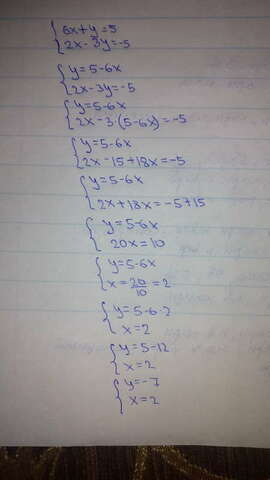 {6x+y=5
{2x-3y=-5
{y=5-6x
{2x-3y=-5
{y=5-6x
{2x-3·(5-6x)=-5
{y=5-6x
{2x-15+18x=-5
{y=5-6x
{2x+18x=-5+15
{y=5-6x
{20x=10
{y=5-6x
{x=20/10=2
{y=5-6·2
{x=2
{y=5-12
{x=2
{y=-7
{x=2